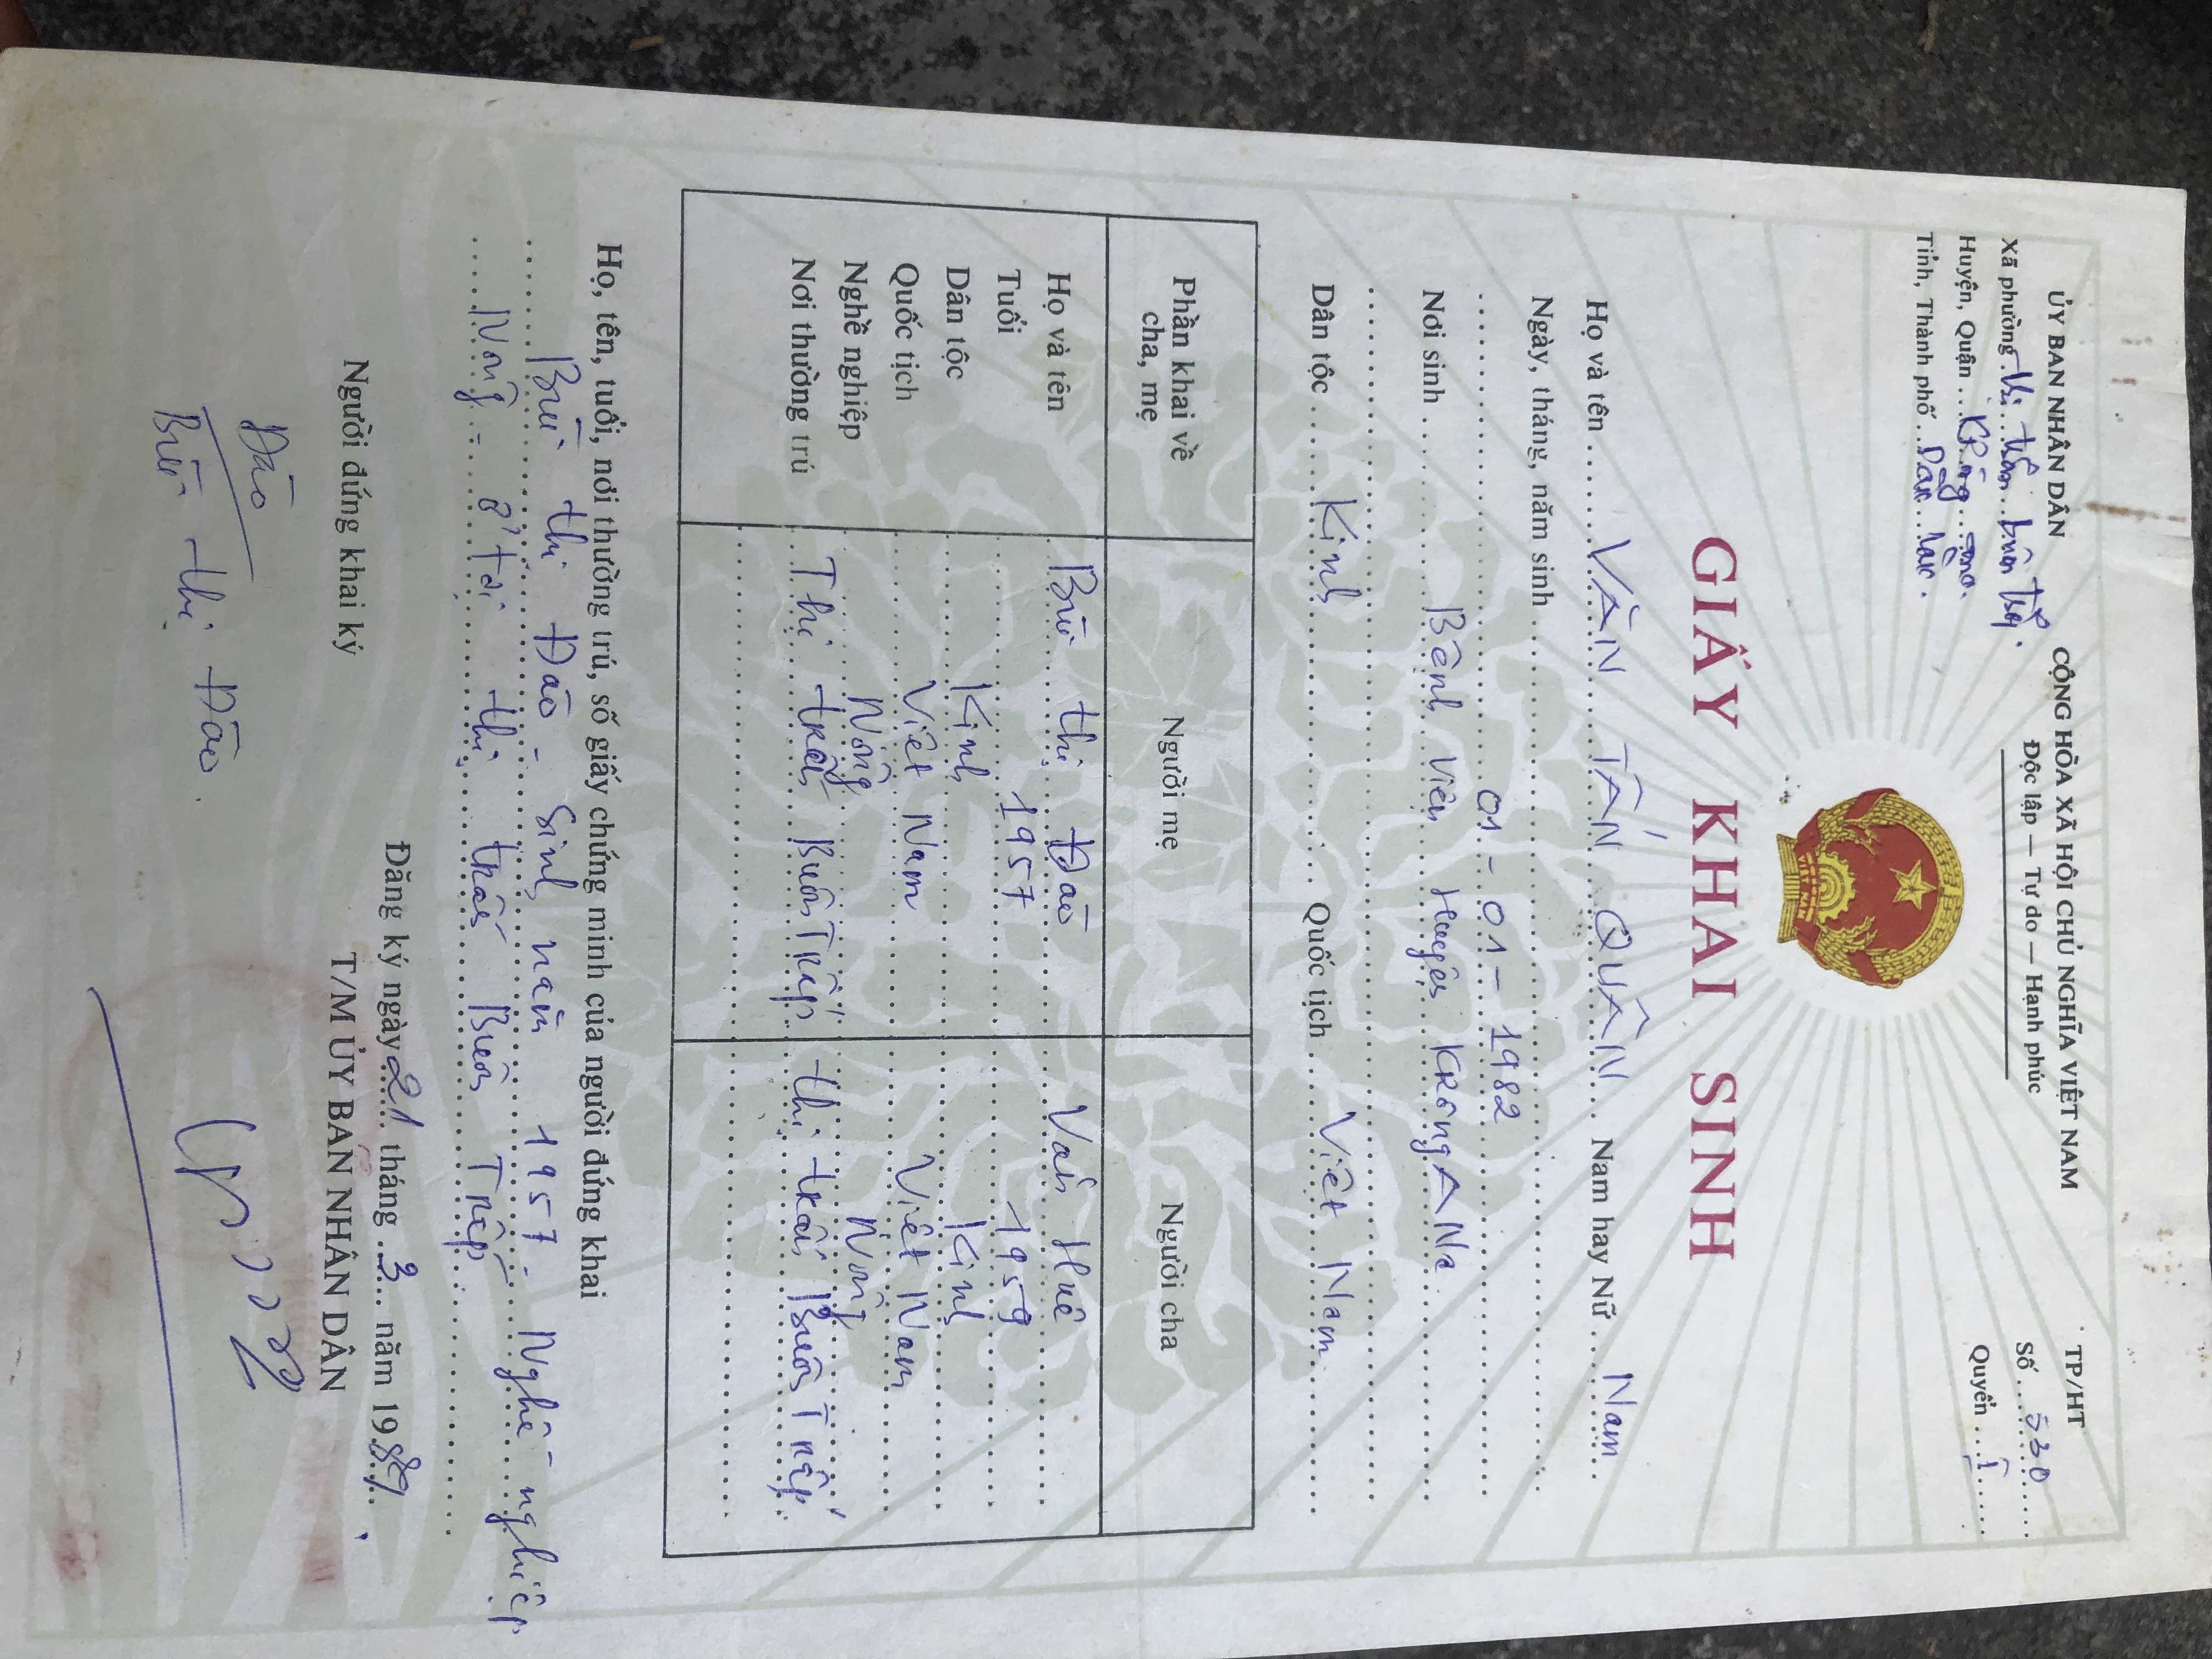 ỦY BAN NHÂN DÂN
Xã phường Thị trấn Buôn Trấp.
Huyện, Quận Krông Ana
Tỉnh, Thành phố Đắk Lắk.
CỘNG HÒA XÃ HỘI CHỦ NGHĨA VIỆT NAM
Độc lập — Tự do — Hạnh phúc
TP/HT
Số 530
Quyển I
GIẤY KHAI SINH
Họ và tên VĂN TẤN QUÂN Nam hay Nữ Nam
Ngày, tháng, năm sinh
01 - 01 - 1982
Nơi sinh Bệnh viện Huyện KRôngANa
Dân tộc Kinh Quốc tịch Việt Nam
Phần khai về cha, mẹ Người mẹ Người cha
Họ và tên Bùi thị Đào Văn Huê
Tuổi 1957 1959
Dân tộc Kinh Kinh
Quốc tịch Việt Nam Việt Nam
Nghề nghiệp Nông Nông
Nơi thường trú Thị trấn Buôn Trấp thị trấn Buôn Trấp
Họ, tên, tuổi, nơi thường trú, số giấy chứng minh của người đứng khai
Bùi thị Đào - Sinh năm 1957 - Nghề nghiệp
Nông - ở tại thị trấn Buôn Trấp
Đăng ký ngày 21 tháng 3 năm 1989
Người đứng khai ký
T/M ỦY BAN NHÂN DÂN
Đào
Bùi thị Đào